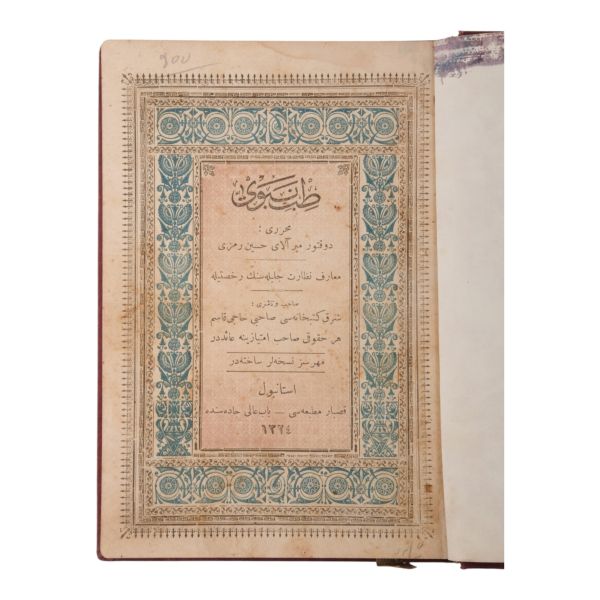 طب نبوی
محرری :
دوقتور میر آلای حسین رمزی
معارف نظارت جلیله‌سنك رخصتیله
صاحب و ناشری :
شرق کتبخانه‌سی صاحبی حاجی قاسم
هر حقوقی صاحب امتیازینه عائددر
مهرسز نسخه‌لر ساخته‌در
استانبول
قصبار مطبعه‌سی — باب عالی جاده‌سنده
١٣٢٤